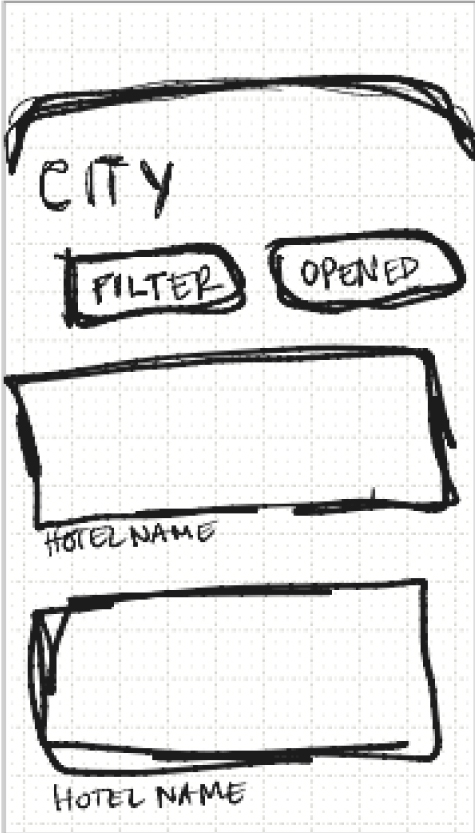 CITY
FILTER OPENED
HOTEL NAME
HOTEL NAME